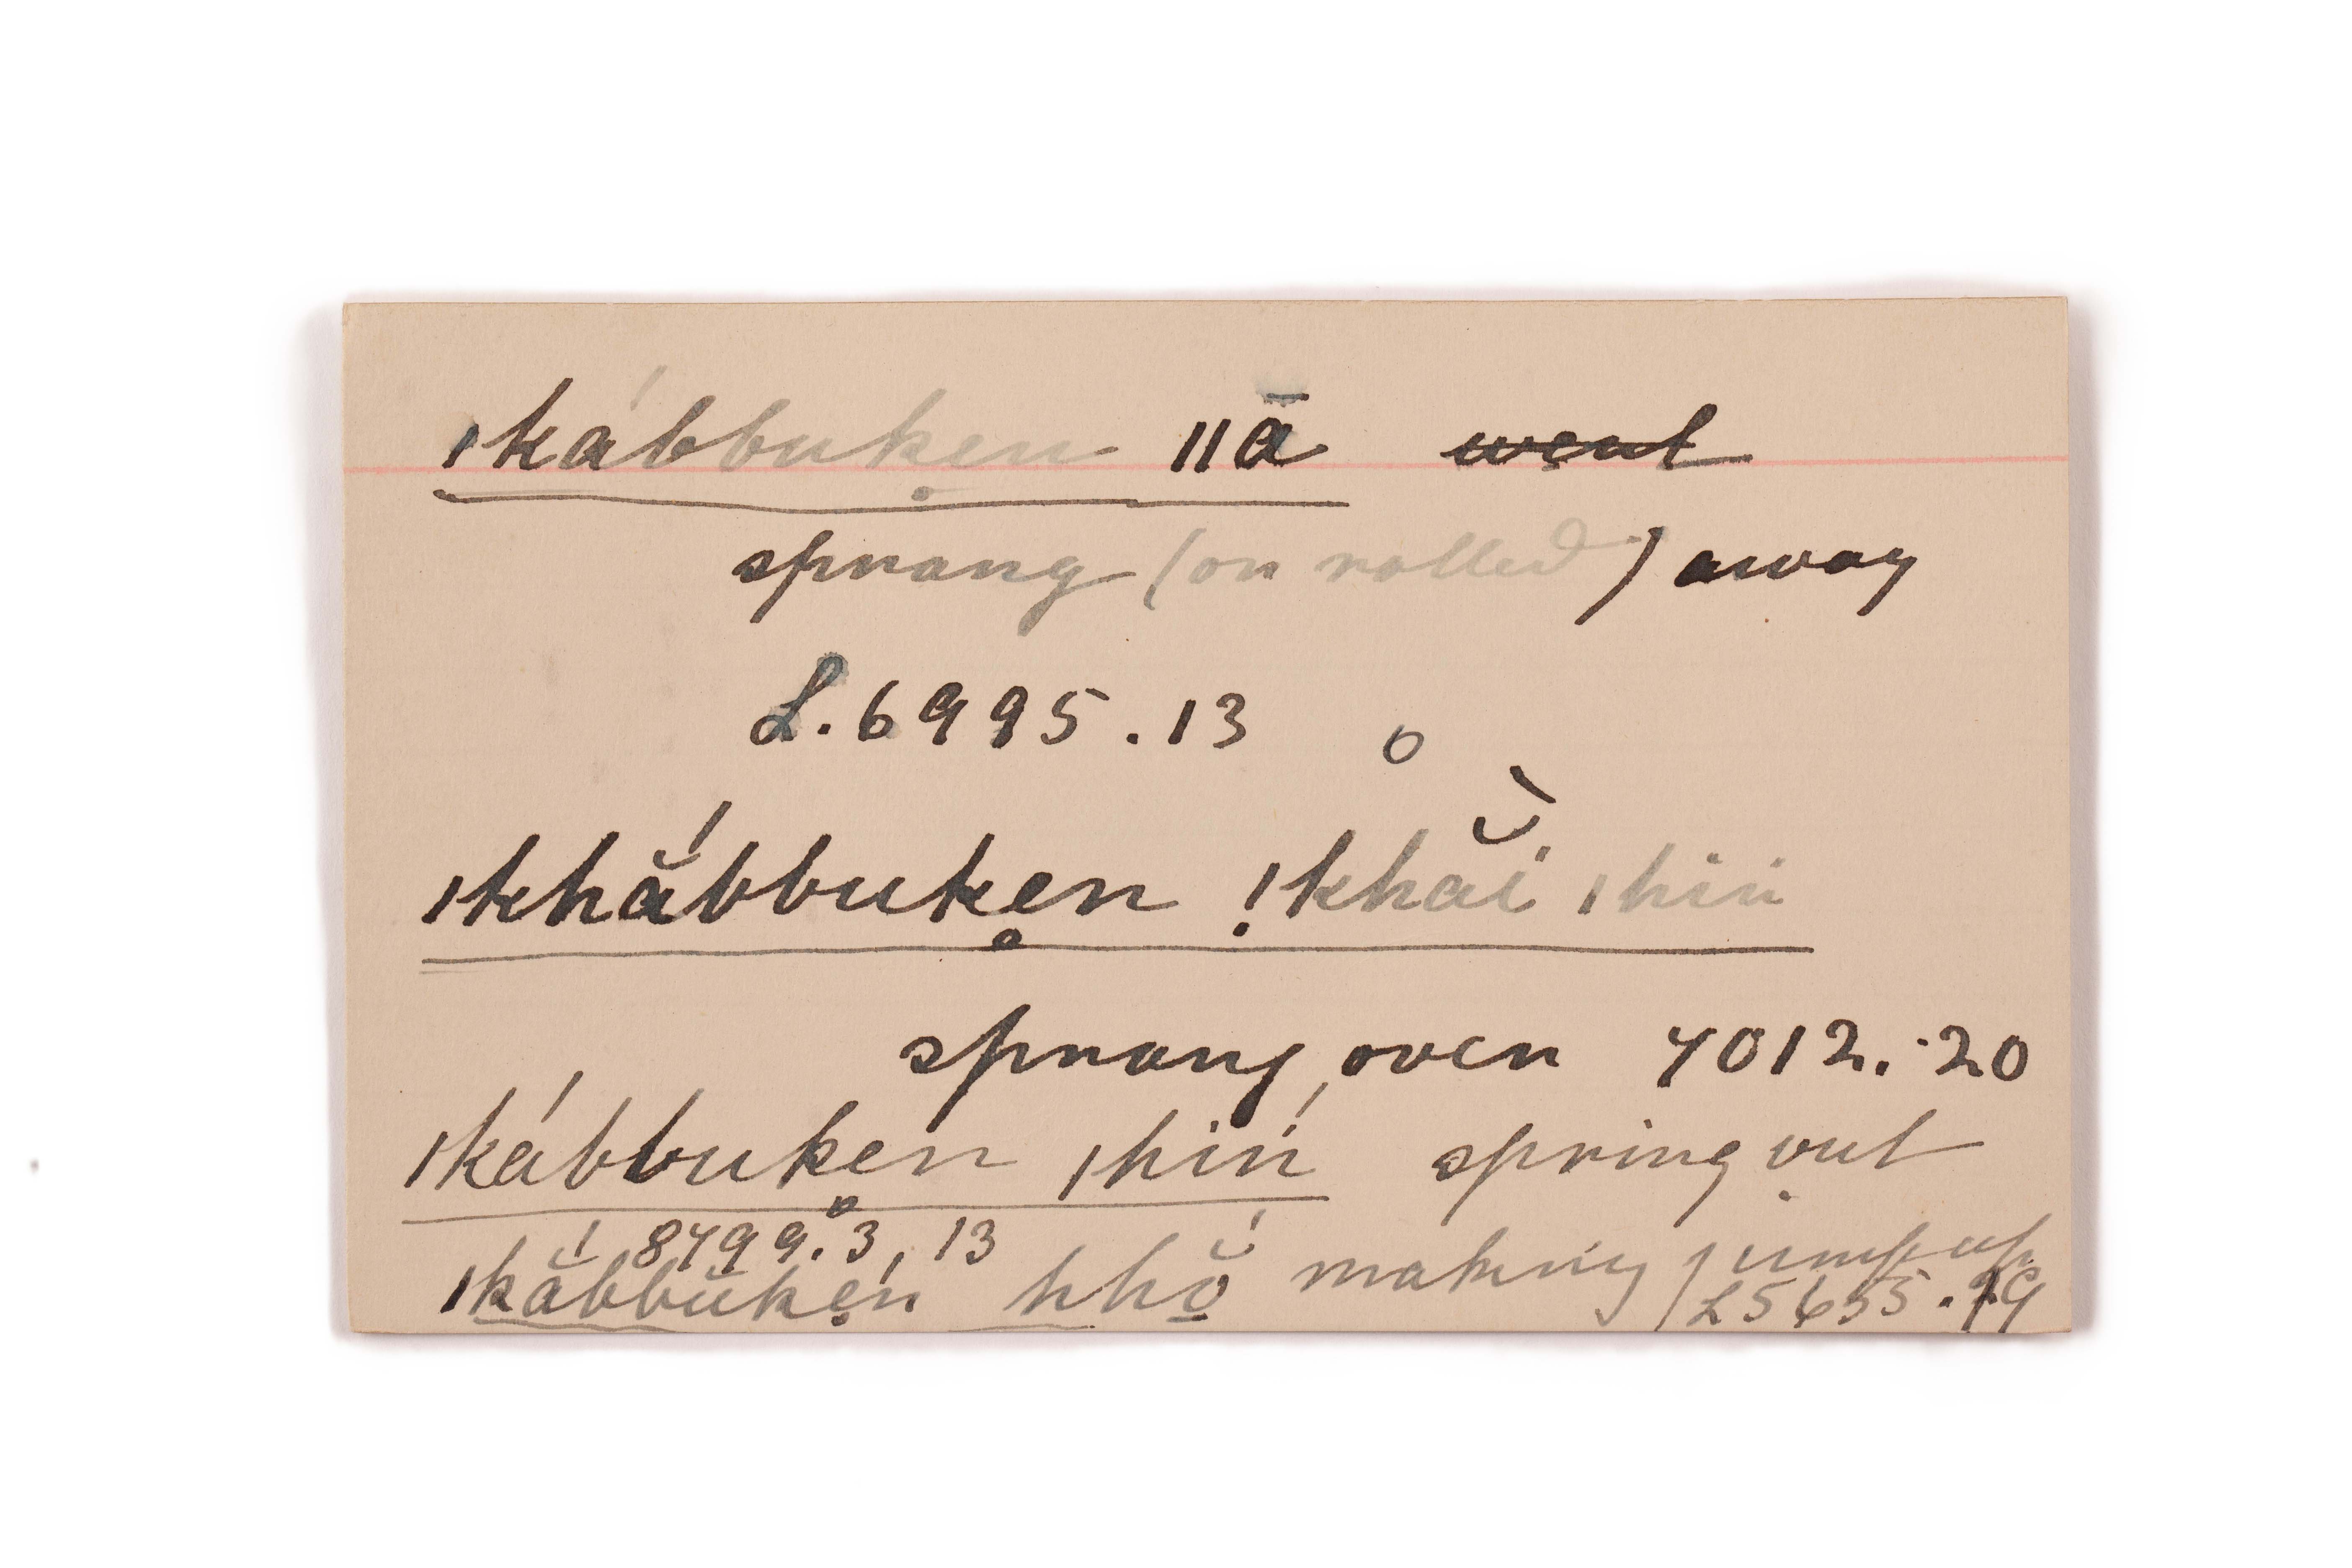 ǀkábbuk̥en ǁā ~~went~~
sprang (or rolled) away
L.6995.13
ǀkhā̆́bbuk̥en !khāĭ ǀhin
sprang over 7012.-20
ǀkábbuk̥en ǀhiń spring out
8799.3, 13
ǀkắbbŭk̥en hhŏ̱́ making jump up
L5655.19